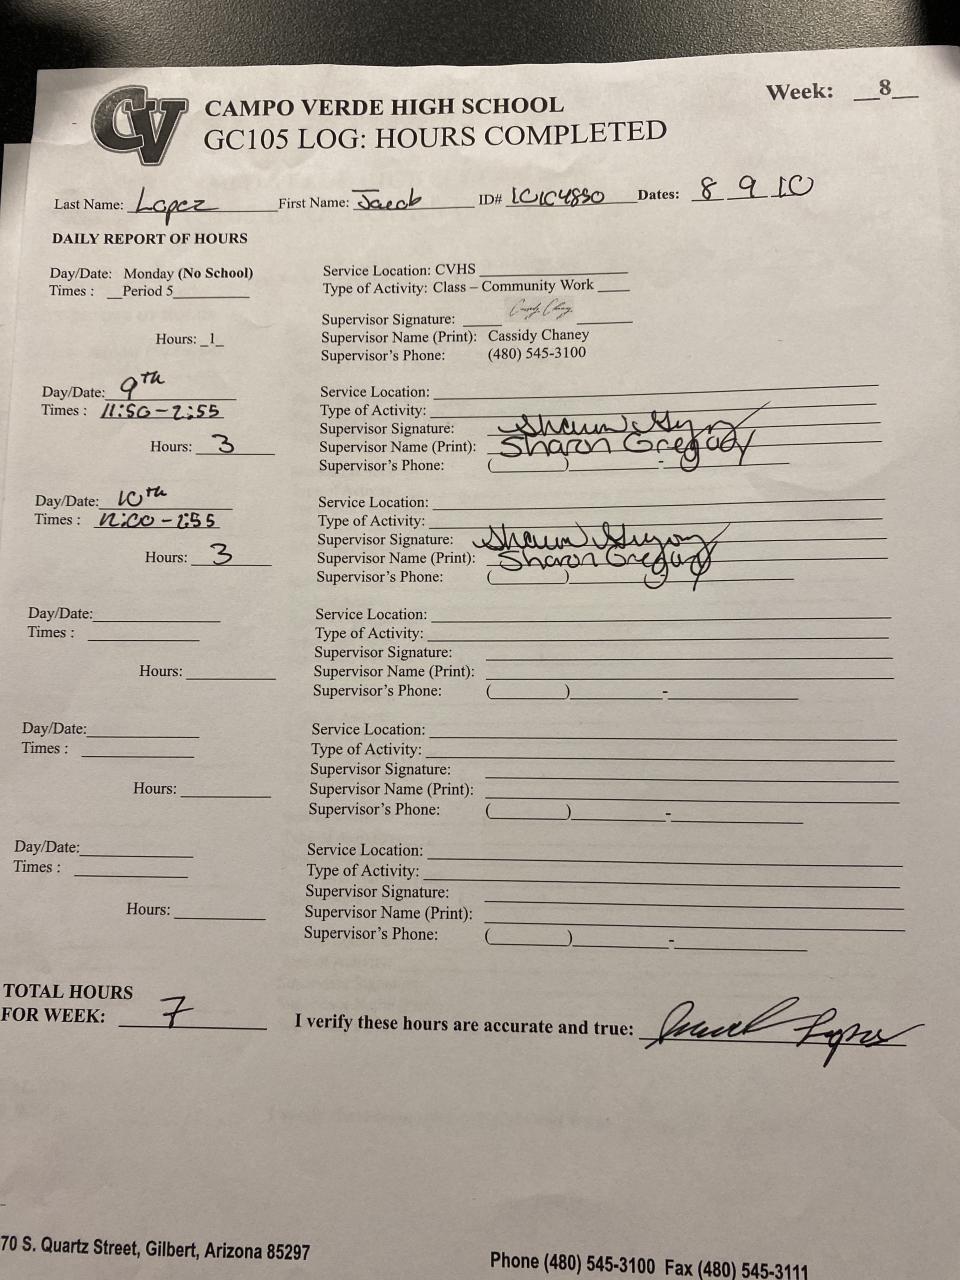 CV
CAMPO VERDE HIGH SCHOOL
Week: __8__
GC105 LOG: HOURS COMPLETED
Last Name: Lopez First Name: Jacob ID# 10104880 Dates: 8 9 10
DAILY REPORT OF HOURS
Day/Date: Monday (No School)
Times : __Period 5__
Hours: _1_
Service Location: CVHS
Type of Activity: Class – Community Work
Supervisor Signature:
Supervisor Name (Print): Cassidy Chaney
Supervisor's Phone: (480) 545-3100
Day/Date: 9th
Times : 11:50-2:55
Hours: 3
Service Location:
Type of Activity:
Supervisor Signature:
Supervisor Name (Print): Sharon Gregory
Supervisor's Phone: ( ) -
Day/Date: 10th
Times : 12:00-2:55
Hours: 3
Service Location:
Type of Activity:
Supervisor Signature:
Supervisor Name (Print): Sharon Gregory
Supervisor's Phone: ( )
Day/Date:
Times :
Hours:
Service Location:
Type of Activity:
Supervisor Signature:
Supervisor Name (Print):
Supervisor's Phone: ( ) -
Day/Date:
Times :
Hours:
Service Location:
Type of Activity:
Supervisor Signature:
Supervisor Name (Print):
Supervisor's Phone: ( ) -
Day/Date:
Times :
Hours:
Service Location:
Type of Activity:
Supervisor Signature:
Supervisor Name (Print):
Supervisor's Phone: ( ) -
TOTAL HOURS
FOR WEEK: 7
I verify these hours are accurate and true: Jacob Lopez
70 S. Quartz Street, Gilbert, Arizona 85297
Phone (480) 545-3100 Fax (480) 545-3111